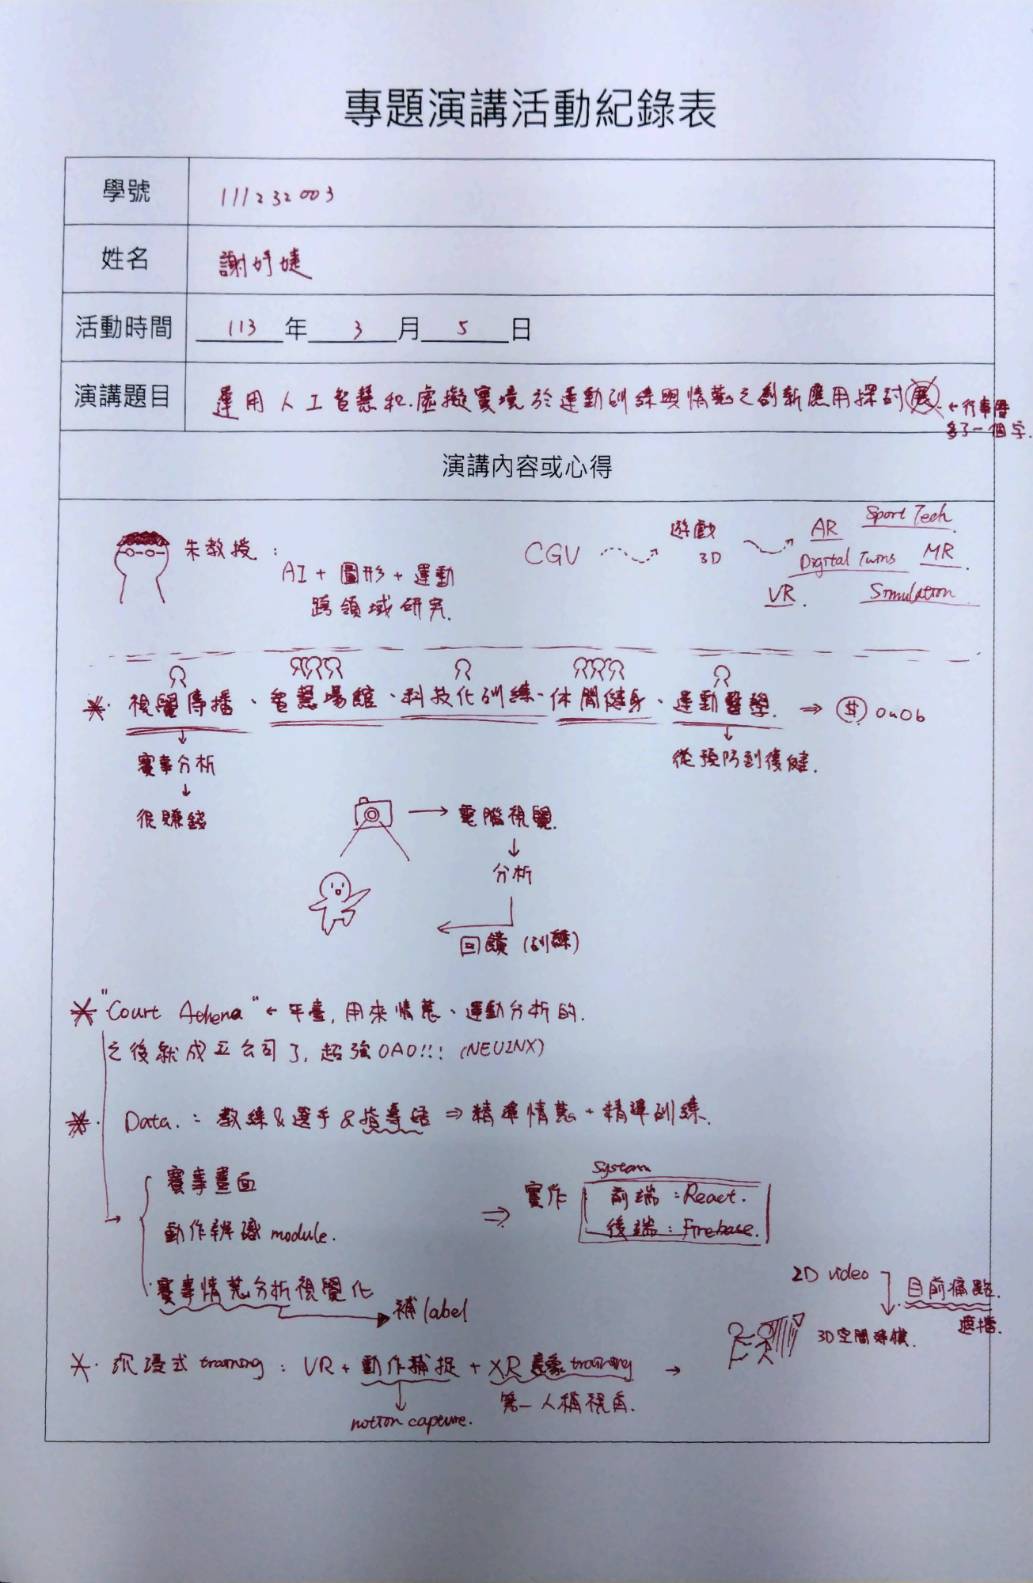 專題演講活動紀錄表
學號 111232003
姓名 謝妤婕
活動時間 113 年 3 月 5 日
演講題目 運用人工智慧和虛擬實境於運動訓練與情蒐之創新應用探討展 ←行事曆
多了一個字.
演講內容或心得
朱教授:
AI + 圖形 + 運動
跨領域研究.
CGV
遊戲
3D
AR Sport Tech.
Digital Twins MR.
VR. Simulation
*. 視覺傳播、智慧場館、科技化訓練、休閒健身、運動醫學. ⇒ $ OuOb
↓
賽事分析
↓
很賺錢
↓
從預防到復健.
→ 電腦視覺.
↓
分析
回饋 (訓練)
* "Court Athena" ← 平臺, 用來情蒐、運動分析的.
之後就成立公司了, 超強OAO!!! (NEU2NX)
*. Data. : 教練 & 選手 & 指導語 ⇒ 精準情蒐 + 精準訓練.
→ 賽事畫面
動作辨識 module.
賽事情蒐分析視覺化
→ 補 label
⇒ 實作:
System
前端 : React.
後端 : Firebase.
2D video
3D空間建模.
目前痛點.
遮擋.
*. 沉浸式 training : VR + 動作捕捉 + XR 意象 training →
↓
motion capture.
第一人稱視角.